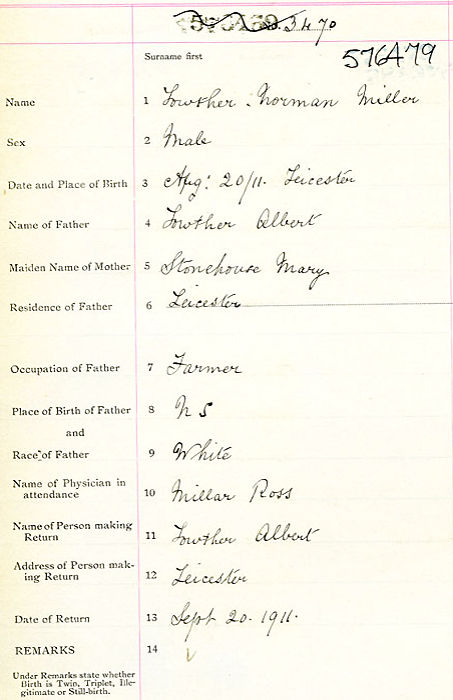 3470
576479
Surname first
Name 1 Lowther Norman Miller
Sex 2 Male
Date and Place of Birth 3 Aug: 20/11. Leicester
Name of Father 4 Lowther Albert
Maiden Name of Mother 5 Stonehouse Mary
Residence of Father 6 Leicester
Occupation of Father 7 Farmer
Place of Birth of Father 8 N S
and
Race of Father 9 White
Name of Physician in
attendance 10 Millar Ross
Name of Person making
Return 11 Lowther Albert
Address of Person mak-
ing Return 12 Leicester
Date of Return 13 Sept 20. 1911.
REMARKS 14
Under Remarks state whether
Birth is Twin, Triplet, Ille-
gitimate or Still-birth.